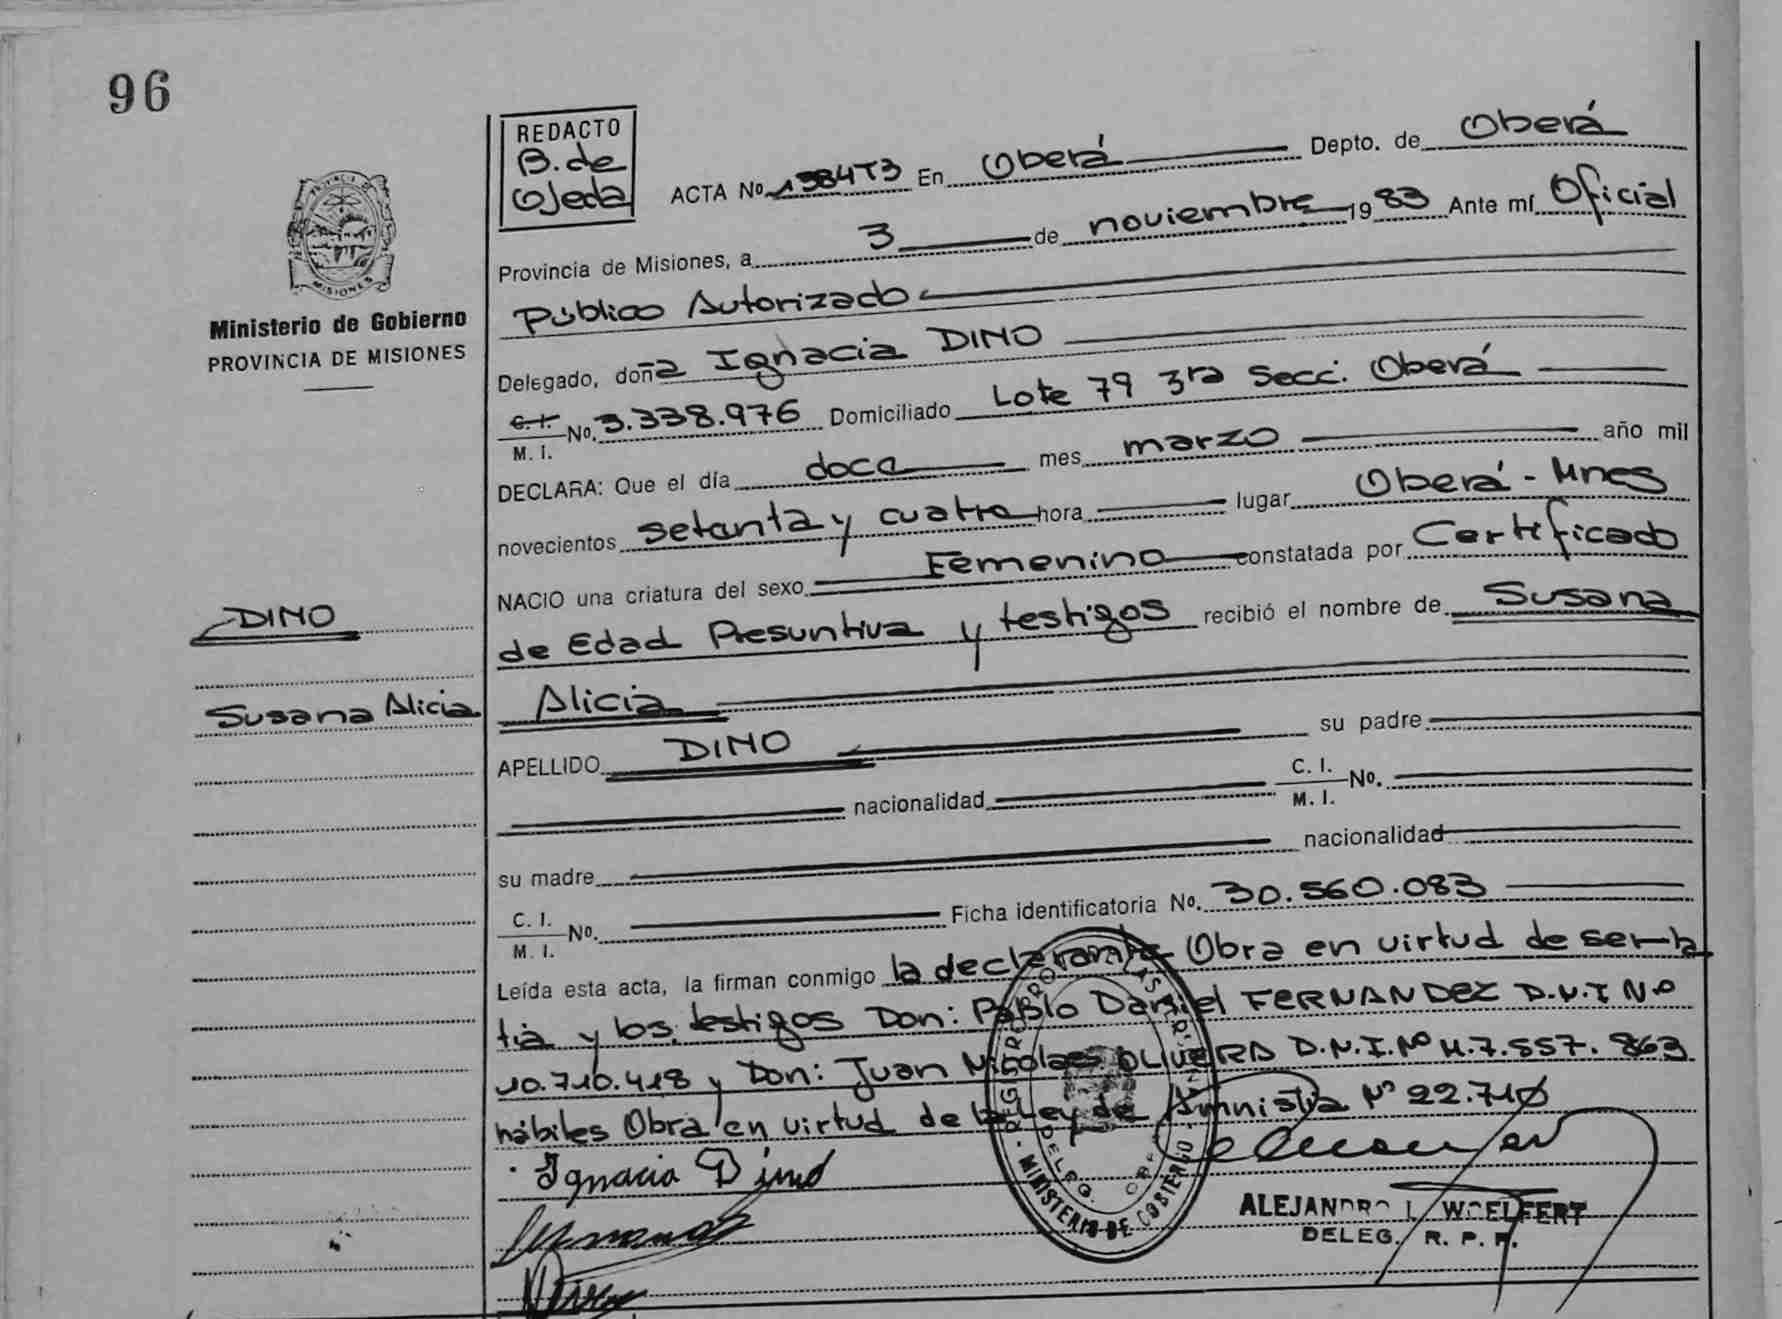 96
REDACTO
B. de
Ojeda
ACTA No 1384T3 En Oberá Depto. de Oberá
Provincia de Misiones, a 3 de noviembre 1983 Ante mí Oficial
Público Autorizado
Ministerio de Gobierno
PROVINCIA DE MISIONES
MISIONES
Delegado, doña Ignacia DINO
C. I.
M. I. No. 3.338.976 Domiciliado Lote 79 3ra Secc. Oberá
DECLARA: Que el día doce mes marzo año mil
novecientos setenta y cuatro hora lugar Oberá - Mnes
NACIO una criatura del sexo Femenino constatada por Certificado
de Edad Presuntiva y testigos recibió el nombre de Susana
Alicia
DINO
Susana Alicia
APELLIDO DINO su padre
nacionalidad C. I.
M. I. No.
su madre nacionalidad
C. I.
M. I. No. Ficha identificatoria No. 30.560.083
Leída esta acta, la firman conmigo la declarante Obra en virtud de ser la
tía y los testigos Don: Pablo Daniel FERNANDEZ D.N.I No
10.710.418 y Don: Juan Nicolaes OLIVERA D.N.I. No M.7.557.863
hábiles Obra en virtud de la Ley de Amnistia No 22.710
Ignacia Dino
MINISTERIO DE GOBIERNO
ALEJANDRO I. WOELFERT
DELEG. R. P. P.